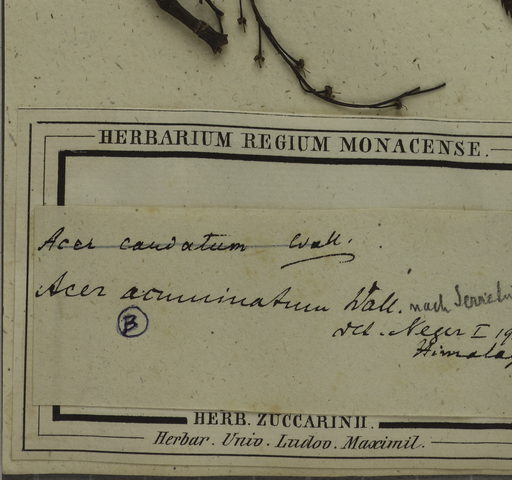 HERBARIUM REGIUM MONACENSE.
Acer caudatum Wall.
Acer acuminatum Wall. nach
B
det. Neger I 19
Himalay
HERB. ZUCCARINII.
Herbar. Univ. Ludov. Maximil.